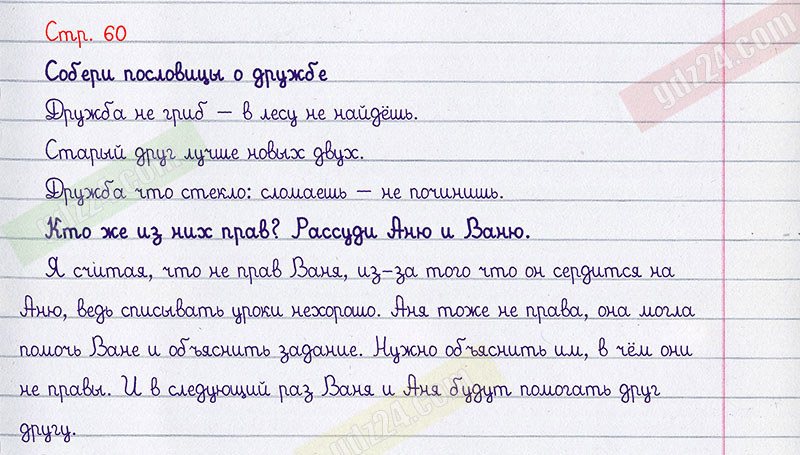 Стр. 60
Собери пословицы о дружбе
Дружба не гриб – в лесу не найдёшь.
Старый друг лучше новых двух.
Дружба что стекло: сломаешь – не починишь.
Кто же из них прав? Рассуди Аню и Ваню.
Я считая, что не прав Ваня, из-за того что он сердится на
Аню, ведь списывать уроки нехорошо. Аня тоже не права, она могла
помочь Ване и объяснить задание. Нужно объяснить им, в чём они
не правы. И в следующий раз Ваня и Аня будут помогать друг
другу.
gdz24.com
gdz24.com
gdz24.com